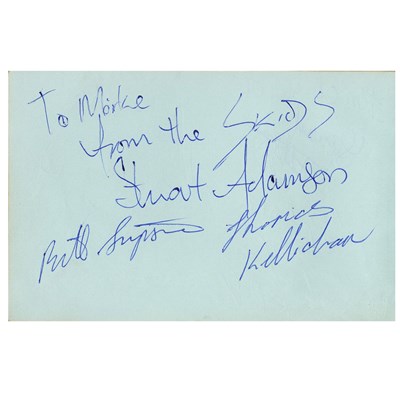 To Mike
from the SKIDS
Stuart Adamson
Bill Simpson Thomas
Kellichan